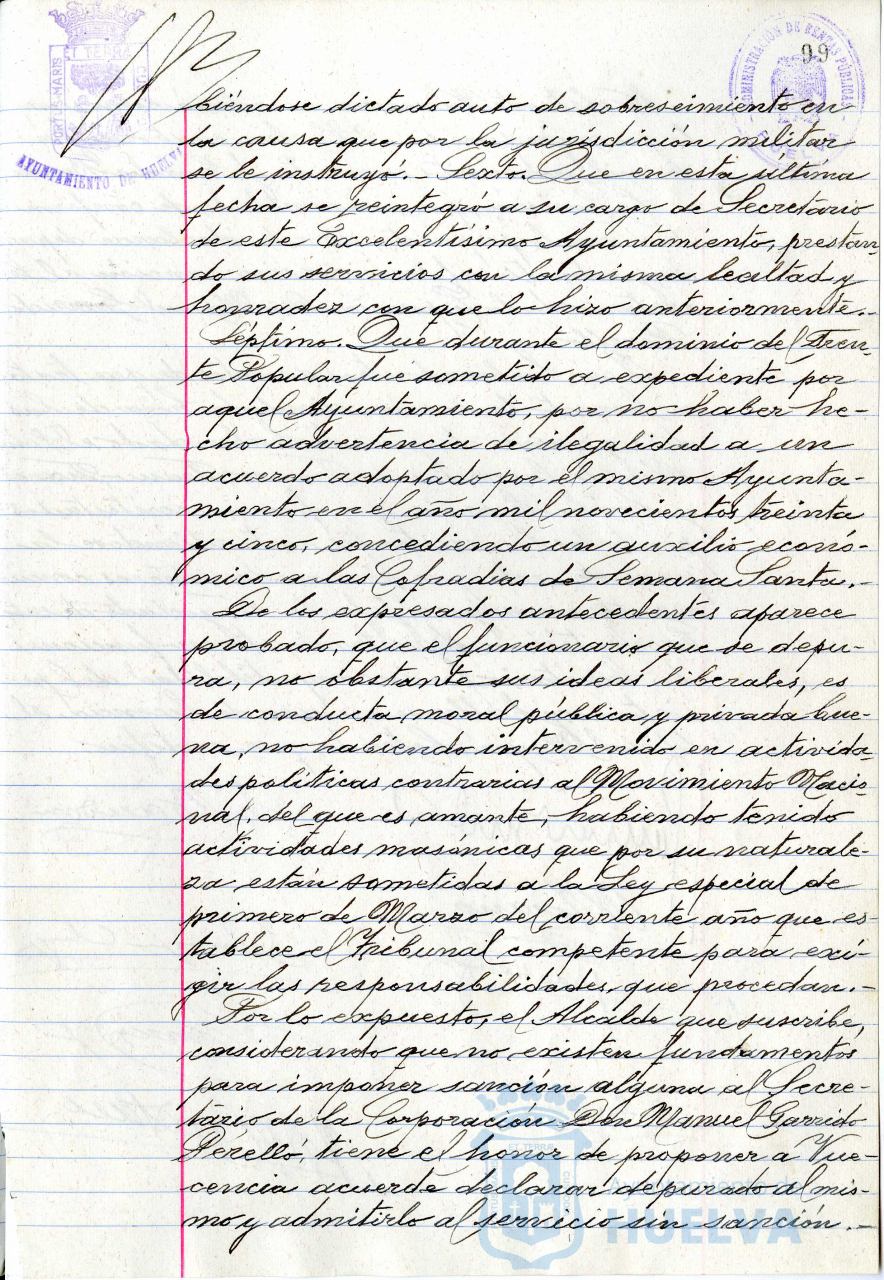 99
ET TERRÆ
PORTUS MARIS
AYUNTAMIENTO DE HUELVA
ADMINISTRACIÓN DE RENTAS PÚBLICAS
biéndose dictado auto de sobreseimiento en
la causa que por la jurisdicción militar
se le instruyó.- Sexto. Que en esta última
fecha se reintegró a su cargo de Secretario
de este Excelentísimo Ayuntamiento, prestan-
do sus servicios con la misma lealtad y
honradez con que lo hizo anteriormente.-
Séptimo. Que durante el dominio del Fren-
te Popular fué sometido a expediente por
aquel Ayuntamiento, por no haber he-
cho advertencia de ilegalidad a un
acuerdo adoptado por el mismo Ayunta-
miento en el año mil novecientos treinta
y cinco, concediendo un auxilio econó-
mico a las Cofradias de Semana Santa.-
De los expresados antecedentes aparece
probado, que el funcionario que se depu-
ra, no obstante sus ideas liberales, es
de conducta moral pública y privada bue-
na, no habiendo intervenido en activida-
des políticas contrarias al Movimiento Nacio-
nal, del que es amante, habiendo tenido
actividades masónicas que por su naturale-
za están sometidas a la Ley especial de
primero de Marzo del corriente año que es-
tablece el Tribunal competente para exi-
gir las responsabilidades que procedan.-
Por lo expuesto, el Alcalde que suscribe,
considerando que no existen fundamentos
para imponer sanción alguna al Secre-
tario de la Corporación Don Manuel Garrido
Perelló, tiene el honor de proponer a Vue-
cencia acuerde declarar depurado al mis-
mo y admitirlo al servicio sin sanción.-
HUELVA